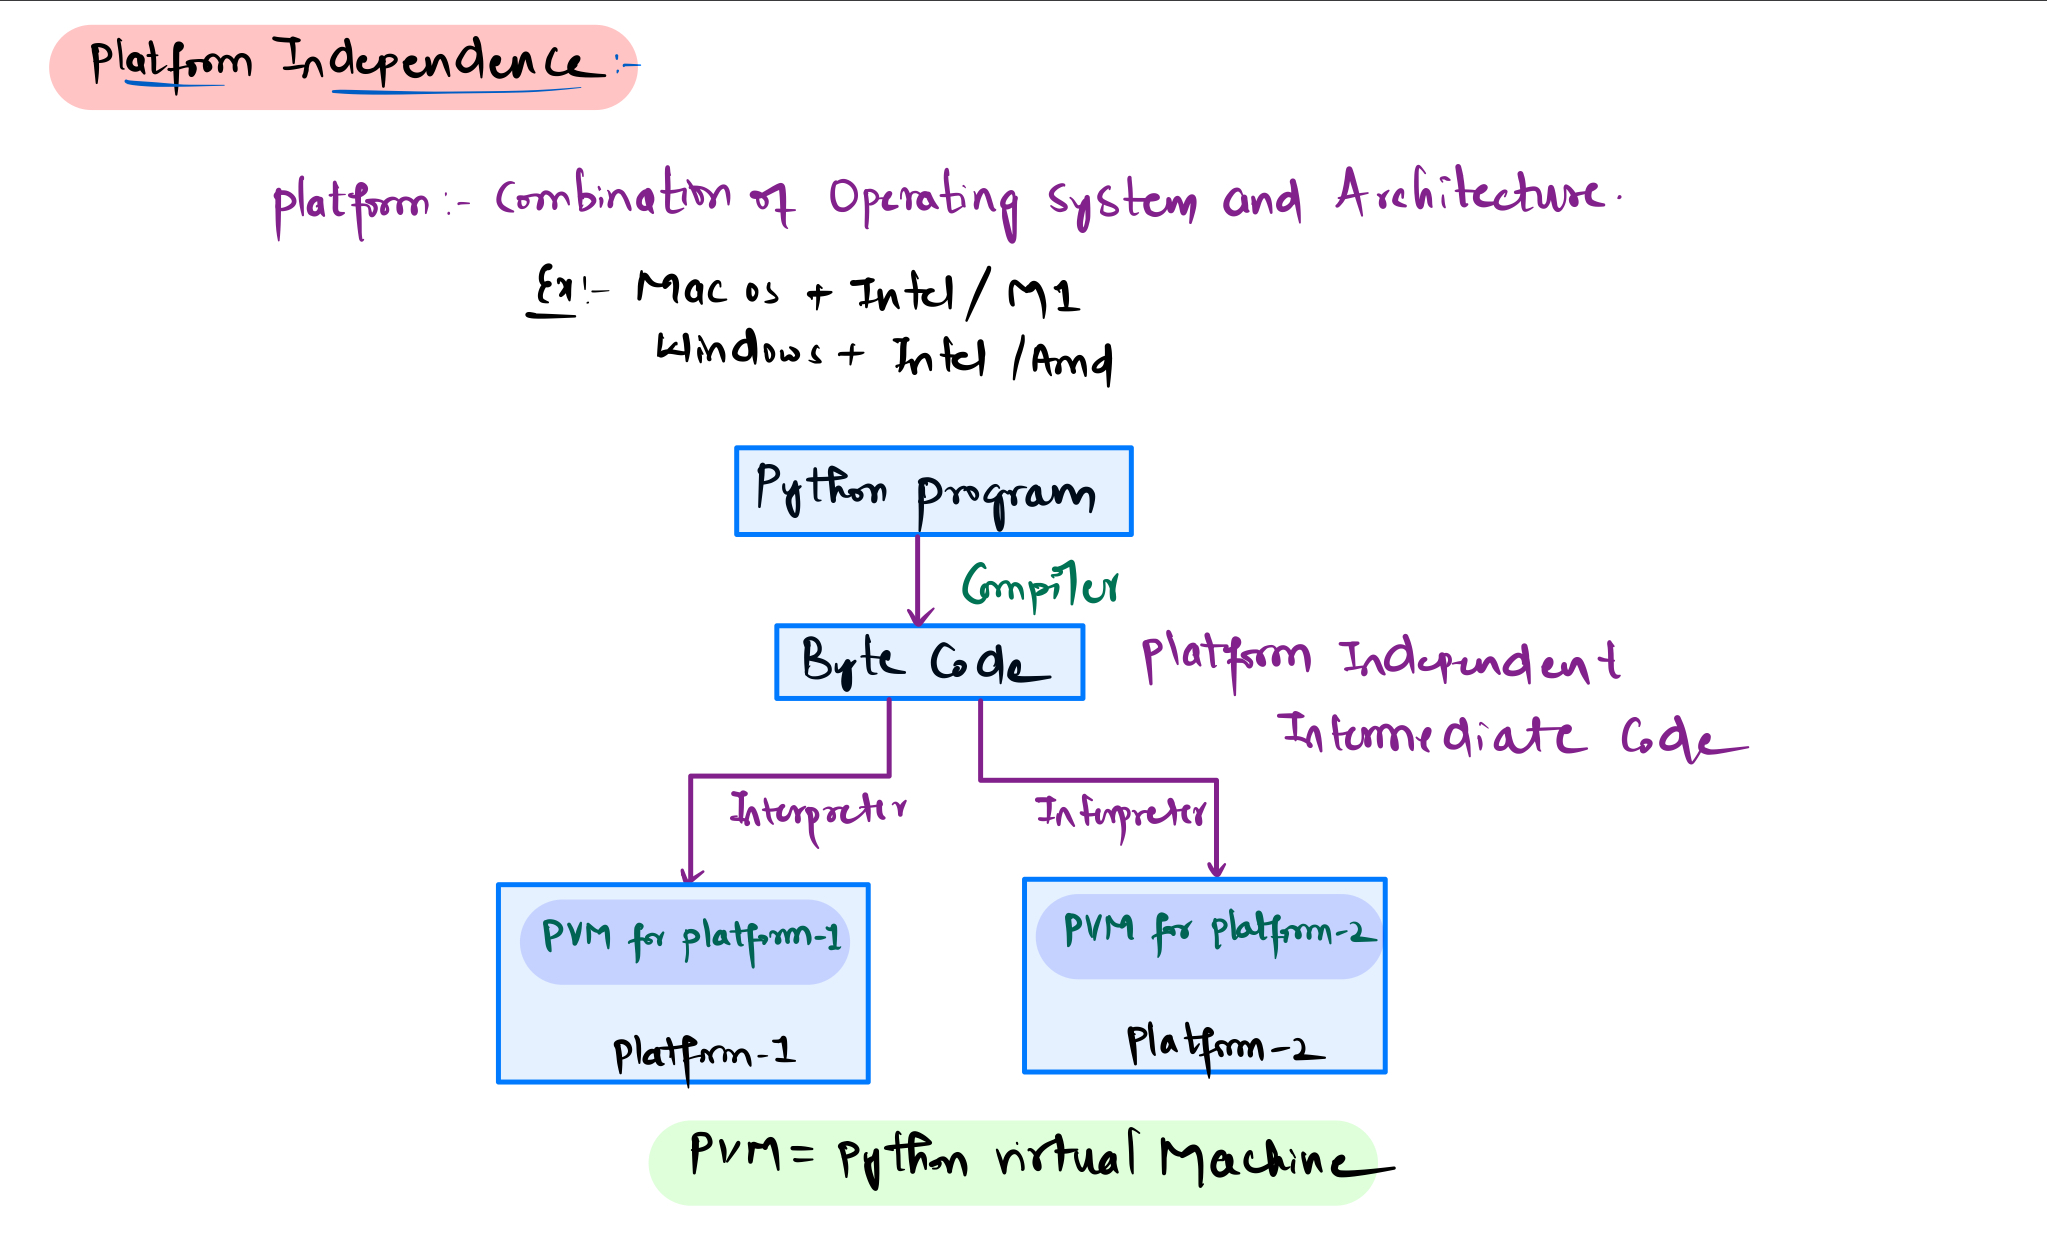 Platform Independence :-
platform :- Combination of Operating System and Architecture.
Ex :- Mac os + Intel / M1
Windows + Intel / Amd
Python program
Compiler
Byte Code
platform Independent
Intermediate Code
Interpreter Interpreter
PVM for platform-1 PVM for platform-2
platform-1 platform-2
PVM = python virtual Machine